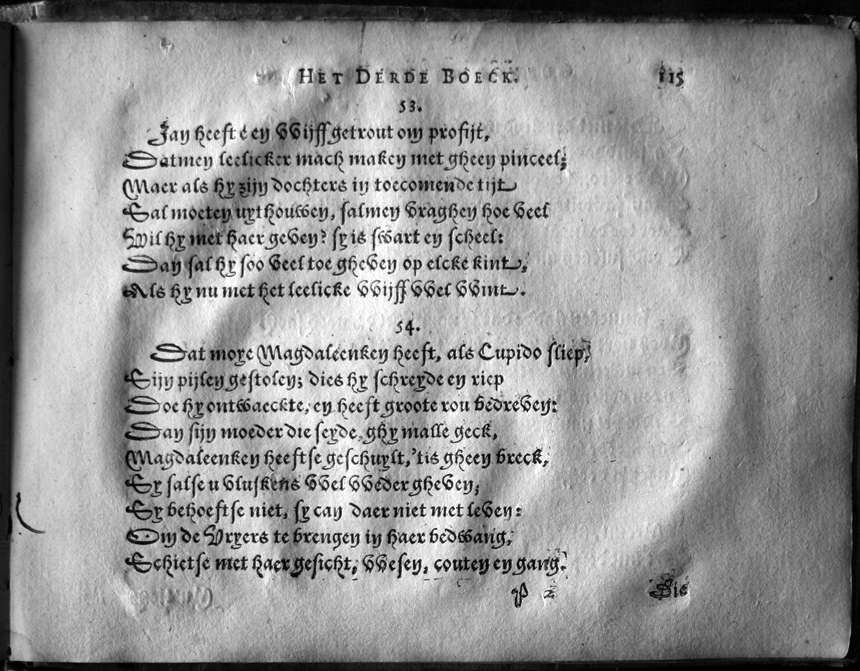 HET DERDE BOECK. 115
53.
Jan heeft een Wijff getrout om profijt,
Datmen leelicker mach maken met gheen pinceel;
Maer als hy zijn dochters in toecomende tijt
Sal moeten uythouwen, salmen vraghen hoe veel
Wil hy met haer geven? sy is swart en scheel:
Dan sal hy soo veel toe gheven op elcke kint,
Als hy nu met het leelicke Wijff wel wint.
54.
Dat moye Magdaleenken heeft, als Cupido sliep,
Sijn pijlen gestolen; dies hy schreyde en riep
Doe hy ontwaeckte, en heeft groote rou bedreven:
Dan sijn moeder die seyde, ghy malle geck,
Magdaleenken heeftse geschuylt, 'tis gheen breck,
Sy salse u vluskens wel weder gheven;
Sy behoeftse niet, sy can daer niet met leven:
Om de Vryers te brengen in haer bedwang,
Schietse met haer gesicht, wesen, couten en gang.
P 2 Die